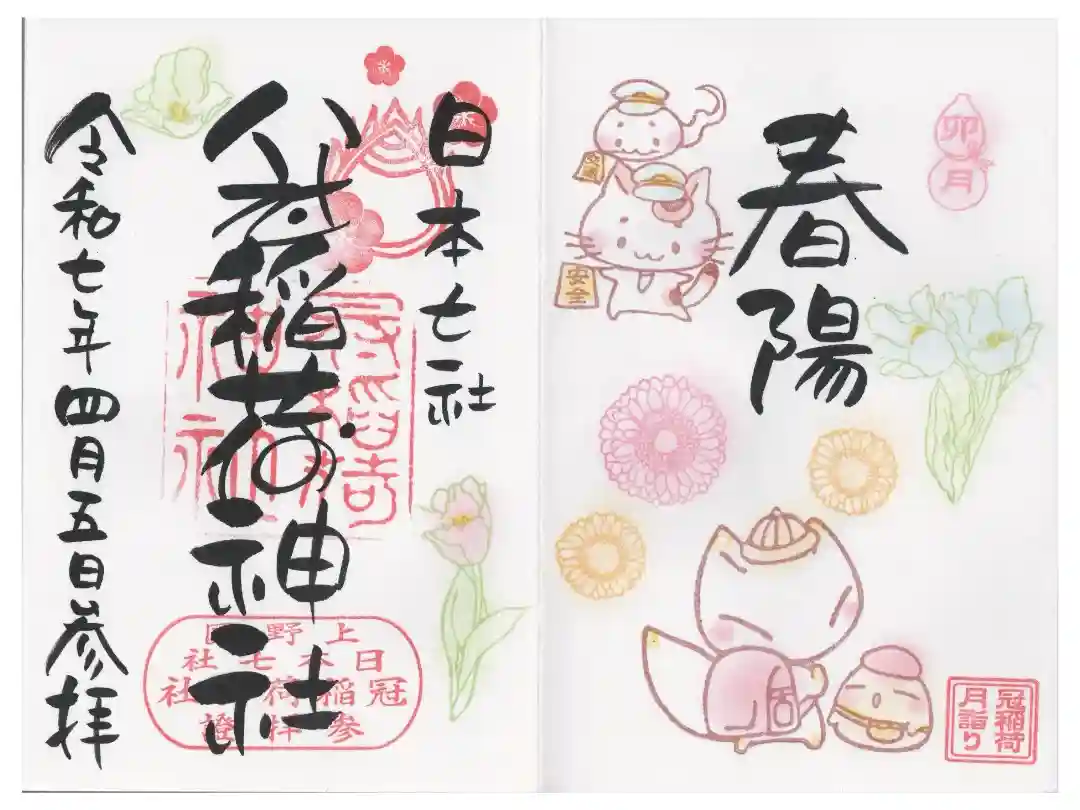 卯月
春陽
安全
冠稲荷
月詣り
日本七社
冠稲荷神社
令和七年四月五日参拝
上野国
日本七社
冠稲荷神社
參拝證